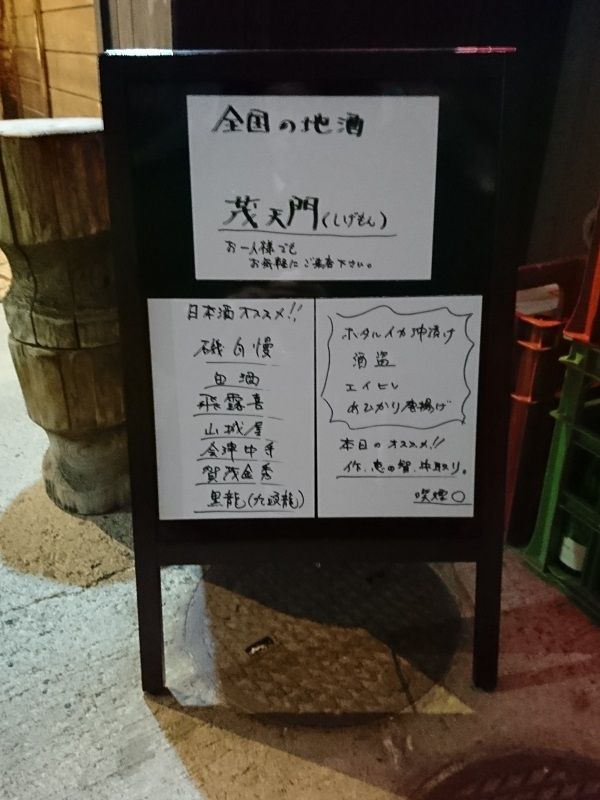 全国の地酒
茂天門(しげもん)
お一人様でも
お気軽にご来店下さい。
日本酒オススメ!!
磯自慢
由酒
飛露喜
山城屋
会津中将
賀茂金秀
黒龍(九頭龍)
ホタルイカ沖漬け
酒盗
エイヒレ
めひかり唐揚げ
本日のオススメ!!
作、恵の智、中取り。
喫煙〇